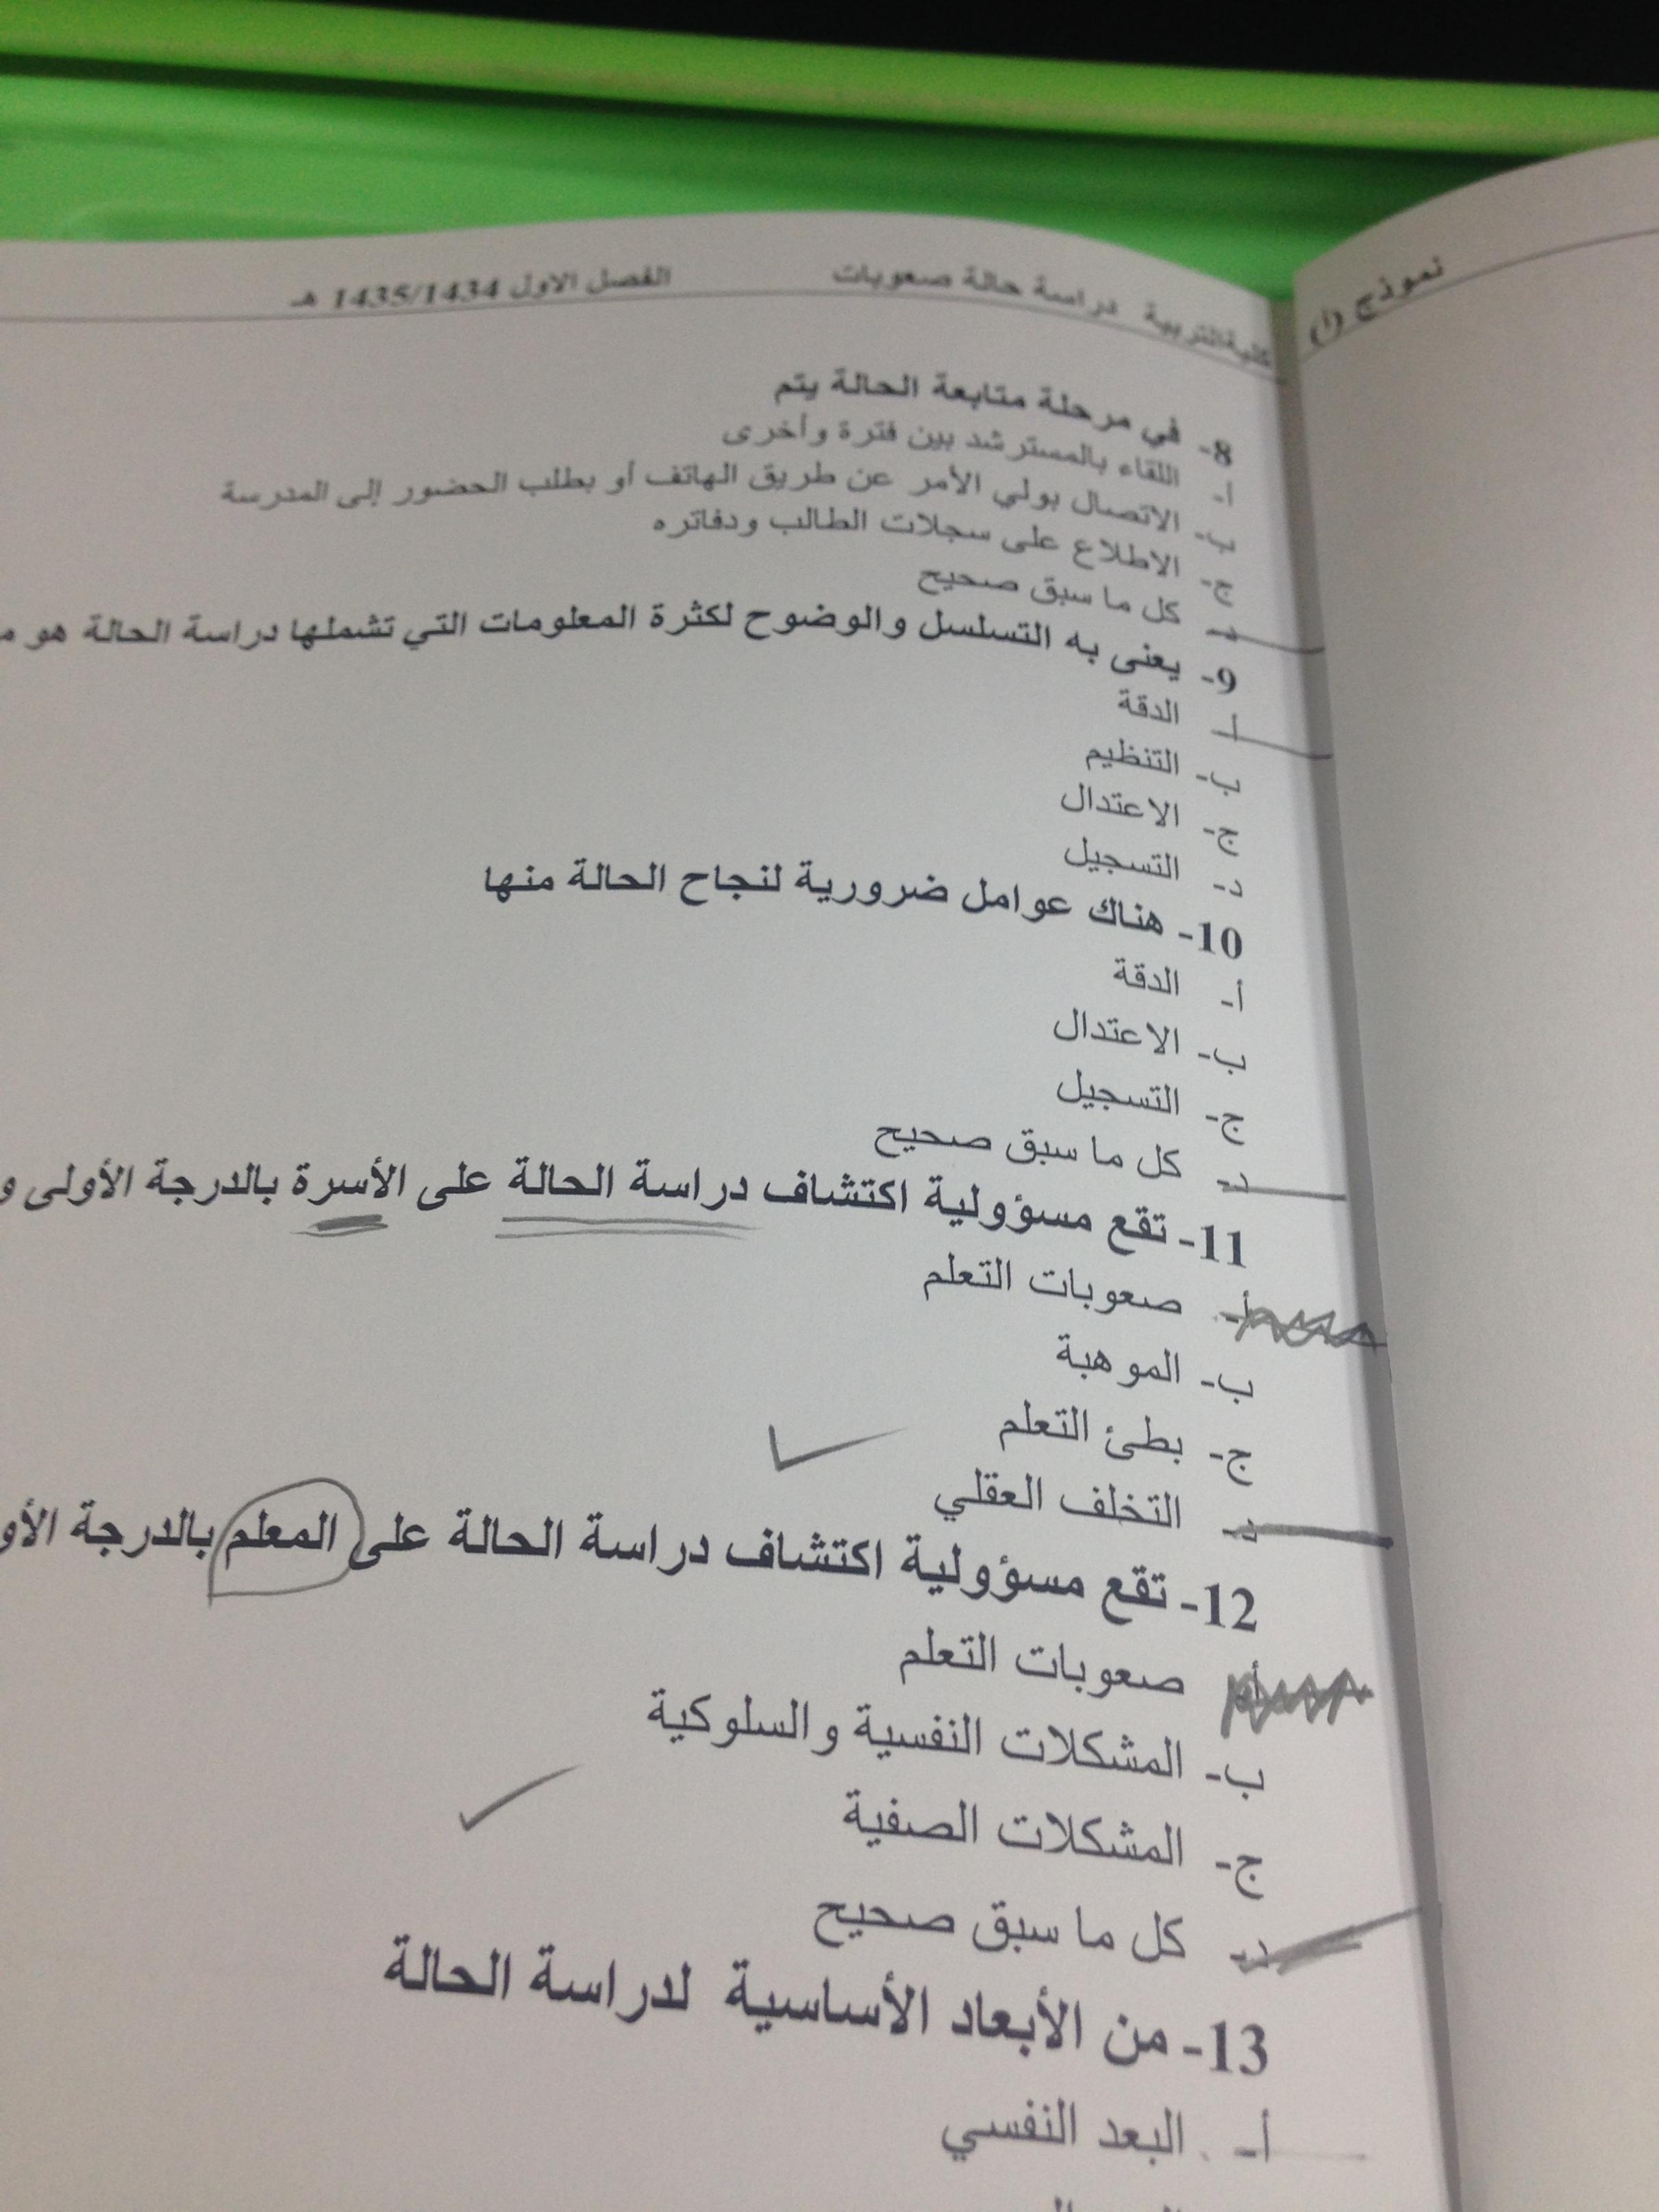 نموذج (أ)
كلية التربية دراسة حالة صعوبات الفصل الاول 1435/1434 هـ
8- في مرحلة متابعة الحالة يتم
أ- اللقاء بالمسترشد بين فترة وأخرى
ب- الاتصال بولي الأمر عن طريق الهاتف أو بطلب الحضور إلى المدرسة
ج- الاطلاع على سجلات الطالب ودفاتره
د- كل ما سبق صحيح
9- يعنى به التسلسل والوضوح لكثرة المعلومات التي تشملها دراسة الحالة هو
أ- الدقة
ب- التنظيم
ج- الاعتدال
د- التسجيل
10- هناك عوامل ضرورية لنجاح الحالة منها
أ- الدقة
ب- الاعتدال
ج- التسجيل
د- كل ما سبق صحيح
11- تقع مسؤولية اكتشاف دراسة الحالة على الأسرة بالدرجة الأولى و
أ- صعوبات التعلم
ب- الموهبة
ج- بطئ التعلم
د- التخلف العقلي
12- تقع مسؤولية اكتشاف دراسة الحالة على المعلم بالدرجة
أ- صعوبات التعلم
ب- المشكلات النفسية والسلوكية
ج- المشكلات الصفية
د- كل ما سبق صحيح
13- من الأبعاد الأساسية لدراسة الحالة
أ- البعد النفسي